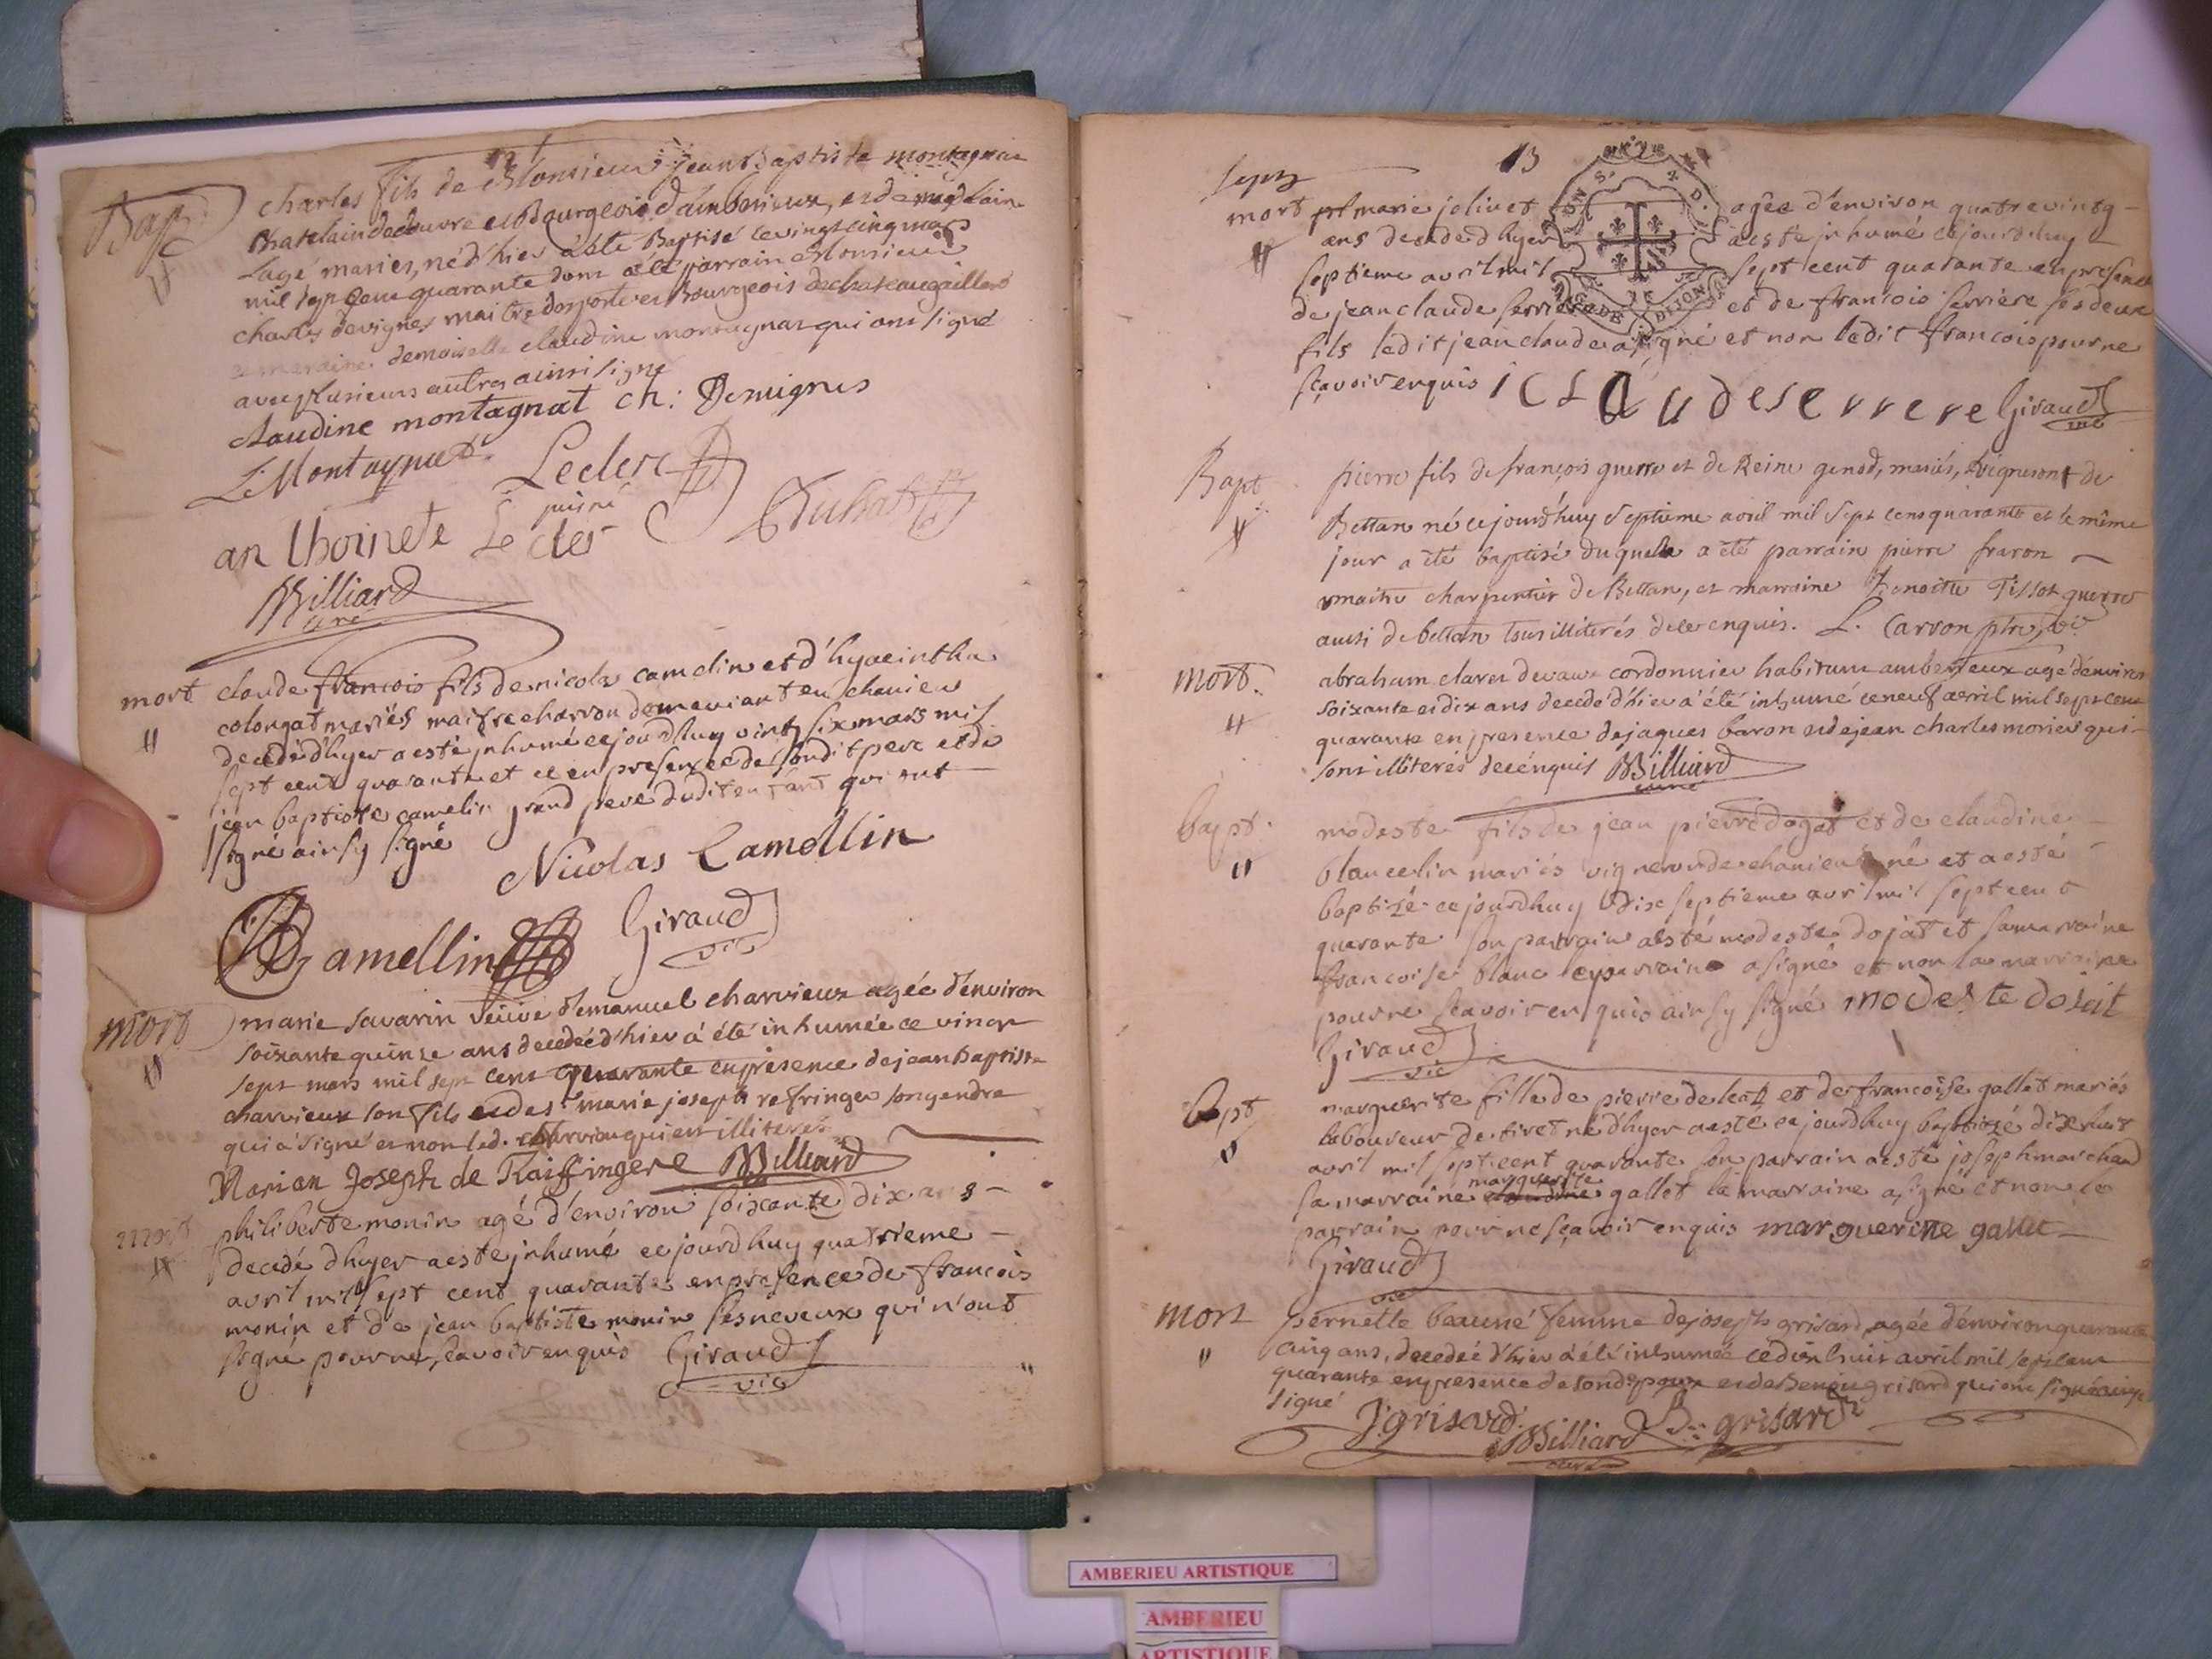 Bapt
charles fils de Monsieur jean Baptiste montagnat
Chatelain de douvre et Bourgeois d'amberieux, et de magdelaine
mariés, né d'hier a été Baptisé le vingt cinq mars
mil sept cent quarante dont a été parrain Monsieur
charles devignes maitre des portes et Bourgeois de chateaugaillard
et maraine demoiselle claudine montagnat qui ont signé
avec plusieurs autres ainsi signé
claudine montagnat ch: Demignes
L. Montagnat Leclerc
puiné
an thoinete Le cler
Billiard
curé
mort claude francois fils de nicolas camelin et d'hyacinthe
colongat mariés maitre charron demeurant en chanieu
decedé d'hyer a esté jnhumé cejourdhuy vintg six mars mil
sept cent quarante et ce en presence de sondit pere et de
jean baptiste camelin grand pere dudit enfant qui ont
signé ainsy signé
Nicolas Camellin
Camellin Giraud
vic
mort marie savarin veuve d'emanuel charvieux agée d'environ
soixante quinze ans decedée d'hier a été inhumée ce vingt
sept mars mil sept cent quarante en presence de jean Baptiste
charvieux son fils et de s.r marie joseph refringer son gendre
qui a signé et non led. charvieux qui est illiteré
Marian Joseph de Raiffingere Billiard
mort philiberte monin agé d'environ soixante dix ans
decedé dhyer a este jnhumé cejourdhuy quatrieme
avril mil sept cent quarante en presence de francois
monin et de jean baptiste monin ses neveux qui n'ont
signé pour ne scavoir enquis Giraud
vic
13
sept
mort marie jolivet agée d'environ quatre vintg
ans decedé d hyer a esté jnhumé cejourdhuy
septieme avril mil sept cent quarante en presence
de jean claude serriere et de francois serriere ses deux
fils ledit jean claude a signé et non ledit francois pour ne
scavoir enquis i c l a u d e s e r r e r e Giraud
vic
Bapt pierre fils de françois guerre et de Reine genod, mariés, vignerons de
Bettan né cejourd'huy septieme avril mil sept cens quarante et le même
jour a été baptisé duquel a été parrain pierre fraron
maitre charpentier de Bettan, et marraine Benoitte Tissot guerre
aussi de bettan tous illiterés de ce enquis. L. Carron ptre, vic
mort. abraham claret devaux cordonnier habitant amberieux agé d'environ
soixante et dix ans decedé d'hier a été inhumé ce neuf avril mil sept cent
quarante en presence de jaques baron et de jean charles morier qui
sont illiterés de ce enquis Billiard
curé
bapt. modeste fils de jean pierre dogat et de claudine
blancelin mariés vigneron de chanieu né et a esté
baptizé cejourdhuy dix septieme avril mil sept cent
quarante son parrain a esté modeste dojat et sa marraine
francoise blanc le parrain a signé et non la marraine
pour ne scavoir enquis ainsy signé modeste dojat
Giraud
vic
Bapt marguerite fille de pierre deleaz et de francoise gallet mariés
laboureur de tiret né d'hyer a esté cejourdhuy baptizé dix huit
avril mil sept cent quarante son parrain a esté joseph marchand
marguerite
sa marraine claudine gallet la marraine a signé et non le
parrain pour ne scavoir enquis marguerite gallet
Giraud
vic
mort pernette beauné femme de joseph grisard agée d'environ quarante
cinq ans, decedée d'hier a été inhumée ce dix huit avril mil sept cent
quarante en presence de sond. epoux et de Benoit grisard qui ont signé ainsi
signé
J. grisard Billiard B. grisard
curé
AMBERIEU ARTISTIQUE
AMBERIEU
ARTISTIQUE